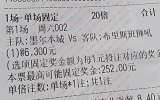 1场-单场固定 20倍 合
第1场 周六002
主队:墨尔本城 Vs 客队:布里斯班狮吼
(1)@6.300元
(选项固定奖金额为每1元投注对应的奖金
本票最高可能固定奖金:252.00元
单倍注数:单场*1注;共1注